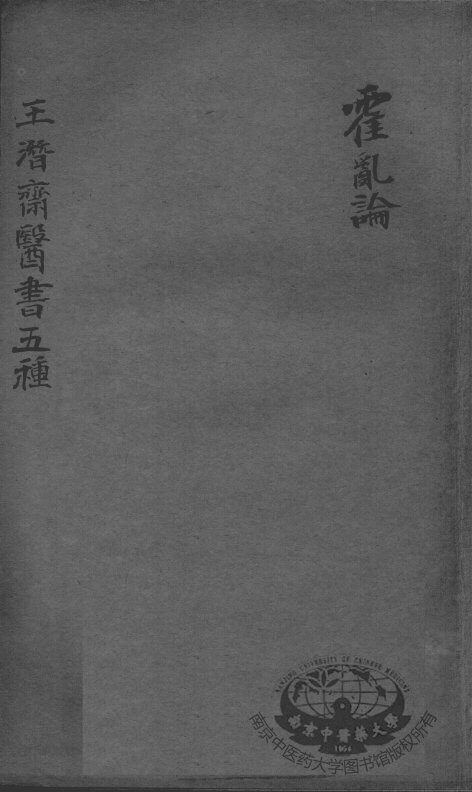 霍亂論
王潛齋醫書五種
NANJING UNIVERSITY OF CHINESE MEDICINE
南京中醫藥大學
1954
南京中医药大学图书馆版权所有